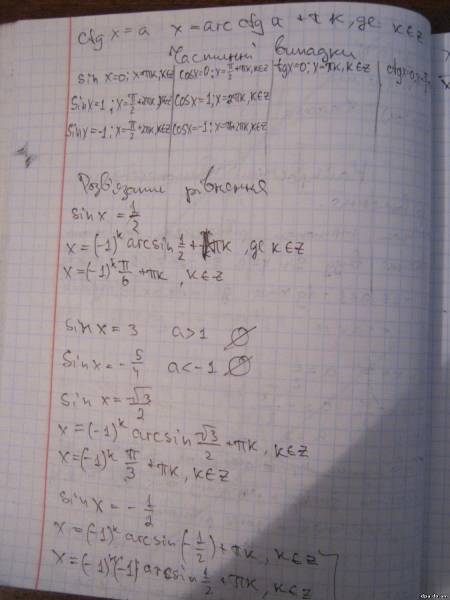 ctg x = a x = arcctg a + πk, де k∈Z
Частинні випадки
sin x=0; x=πk, k∈Z | cosx=0; x=π/2+πk, k∈Z | tgx=0; x=πk, k∈Z | ctgx=0; x=
sinx=1; x=π/2+2πk, k∈Z | cosx=1; x=2πk, k∈Z
sinx=-1; x=-π/2+2πk, k∈Z | cosx=-1; x=π+2πk, k∈Z
Розв'язати рівняння
sin x = 1/2
x = (-1)^k arcsin 1/2 + πk, де k∈Z
x = (-1)^k π/6 + πk, k∈Z
sin x = 3 a>1 ∅
sin x = -5/4 a<-1 ∅
sin x = √3/2
x = (-1)^k arcsin √3/2 + πk, k∈Z
x = (-1)^k π/3 + πk, k∈Z
sin x = -1/2
x = (-1)^k arcsin(-1/2) + πk, k∈Z
x = (-1)^k(-1) arcsin 1/2 + πk, k∈Z